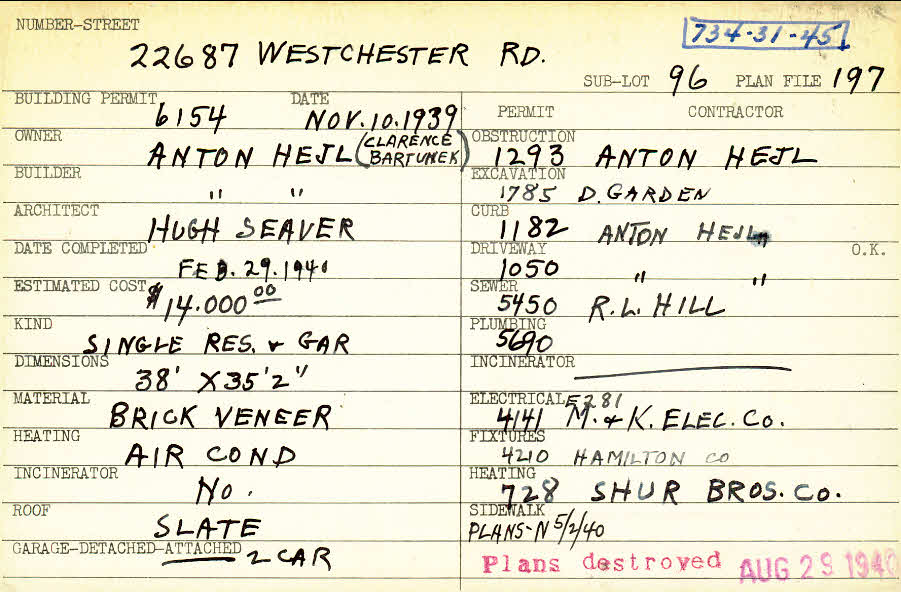 NUMBER-STREET
734-31-45
22687 WESTCHESTER RD.
SUB-LOT 96 PLAN FILE 197
BUILDING PERMIT 6154 DATE NOV.10.1939
OWNER ANTON HEJL (CLARENCE BARTUNEK)
BUILDER " "
ARCHITECT HUGH SEAVER
DATE COMPLETED FEB.29.1940
ESTIMATED COST $14.000 00
KIND SINGLE RES. & GAR
DIMENSIONS 38' X 35'2"
MATERIAL BRICK VENEER
HEATING AIR COND
INCINERATOR NO.
ROOF SLATE
GARAGE-DETACHED-ATTACHED 2 CAR
PERMIT CONTRACTOR
OBSTRUCTION 1293 ANTON HEJL
EXCAVATION 1785 D. GARDEN
CURB 1182 ANTON HEJL
DRIVEWAY 1050 " " O.K.
SEWER 5450 R.L. HILL
PLUMBING 5690
INCINERATOR
ELECTRICAL 4141 M. & K. ELEC. CO.
FIXTURES 4210 HAMILTON CO
HEATING 728 SHUR BROS. CO.
SIDEWALK
PLANS-N 5/2/40
Plans destroyed AUG 29